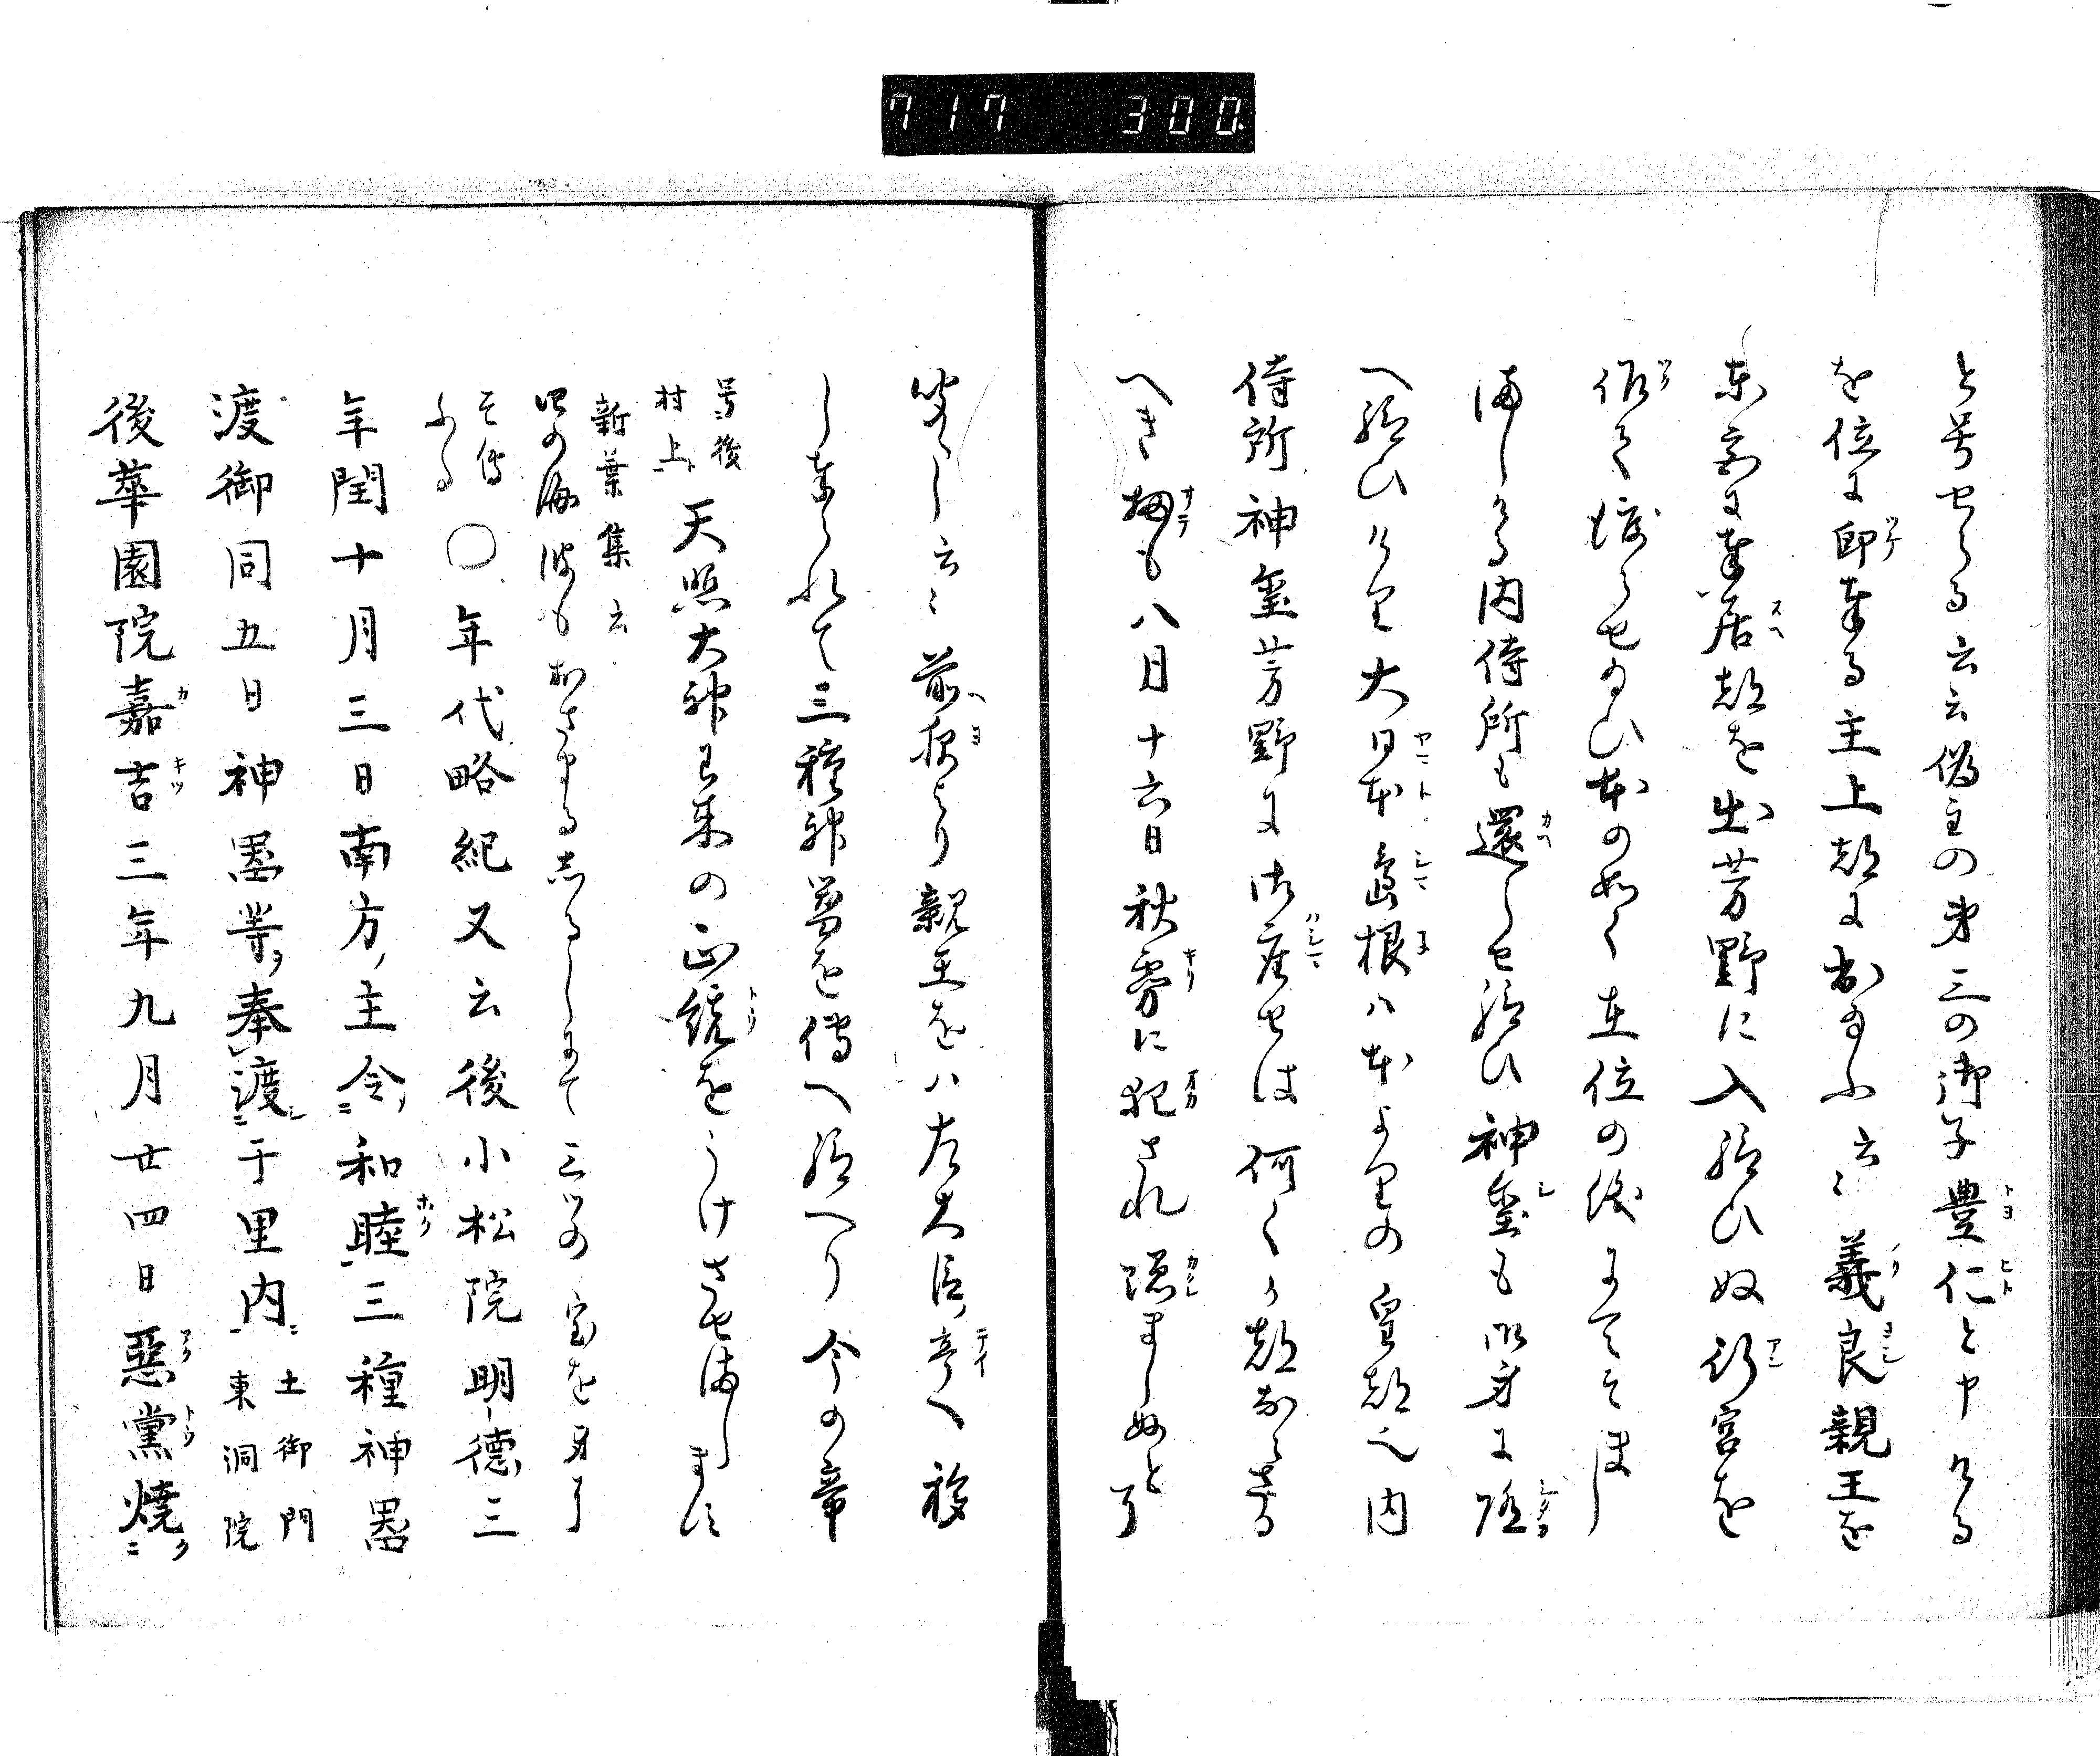 717 300
と号せらる云云偽主の弟三の御子豊仁と申ける
を位に即奉る主上都におゐふ云々義良親王を
東宮に奉居都を出芳野に入給ひぬ行宮を
作て渡らせ給ひ本の如く在位の後にてそまし
ましける内侍所も還しせ給ひ神璽も御身に隨
へ給ひけり大日本島根ハ本よりの皇都也内
侍所神璽芳野に御座せは何くか都ならさる
へき扨も八月十六日秋霧に犯され隠ましぬと
聞えし云々前夜より親王をハ左大臣亭へ移
し奉られて三種神器を傳へ給へり今の帝
号後村上天照大神已来の正統をうけさせ給しまに
新葉集云
四の海波もおさまるしるしとて三の宝を身に
そ傳ふる
〇年代略紀又云後小松院明德三
年閏十月三日南方主令和睦三種神噐
渡御同五日神噐等奉渡于里内土御門東洞院
後華園院嘉吉三年九月廿四日惡黨燒